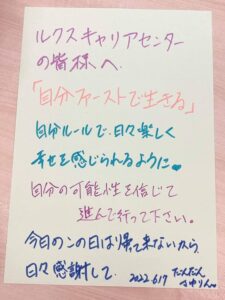 ルクスキャリアセンター
の皆様へ
「自分ファーストで生きる」
自分ルールで、日々楽しく
幸せを感じられるように
自分の可能性を信じて
進んで行って下さい。
今日のこの日は帰って来ないから
日々感謝して 2022.6.17
だんだん
さゆりん